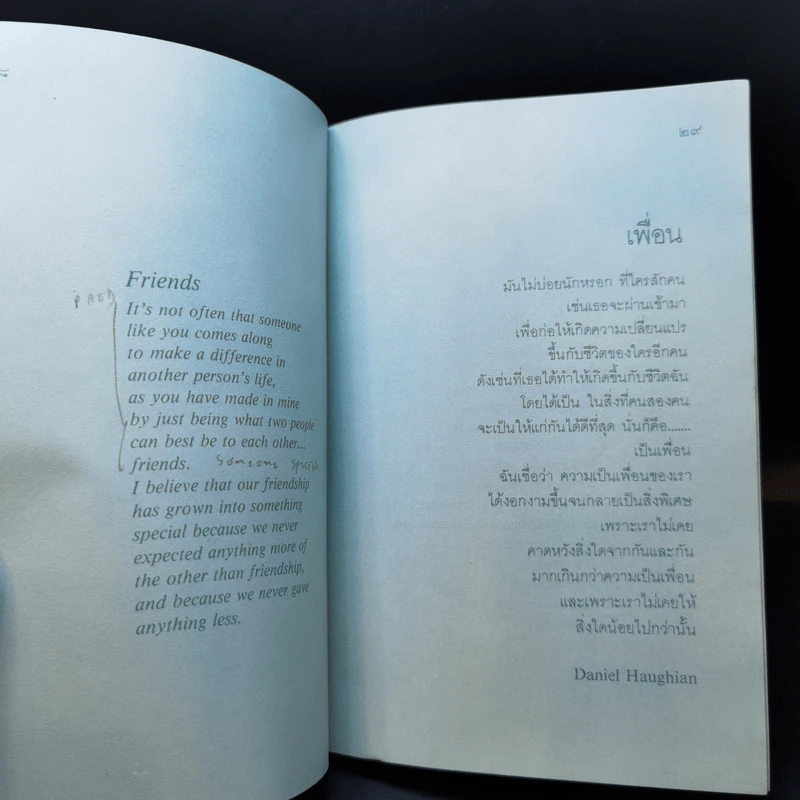 Friends
It's not often that someone
like you comes along
to make a difference in
another person's life,
as you have made in mine
by just being what two people
can best be to each other...
friends. someone special
I believe that our friendship
has grown into something
special because we never
expected anything more of
the other than friendship,
and because we never gave
anything less.
๒๙
เพื่อน
มันไม่บ่อยนักหรอก ที่ใครสักคน
เช่นเธอจะผ่านเข้ามา
เพื่อก่อให้เกิดความเปลี่ยนแปร
ขึ้นกับชีวิตของใครอีกคน
ดังเช่นที่เธอได้ทำให้เกิดขึ้นกับชีวิตฉัน
โดยได้เป็น ในสิ่งที่คนสองคน
จะเป็นให้แก่กันได้ดีที่สุด นั่นก็คือ.......
เป็นเพื่อน
ฉันเชื่อว่า ความเป็นเพื่อนของเรา
ได้งอกงามขึ้นจนกลายเป็นสิ่งพิเศษ
เพราะเราไม่เคย
คาดหวังสิ่งใดจากกันและกัน
มากเกินกว่าความเป็นเพื่อน
และเพราะเราไม่เคยให้
สิ่งใดน้อยไปกว่านั้น
Daniel Haughian